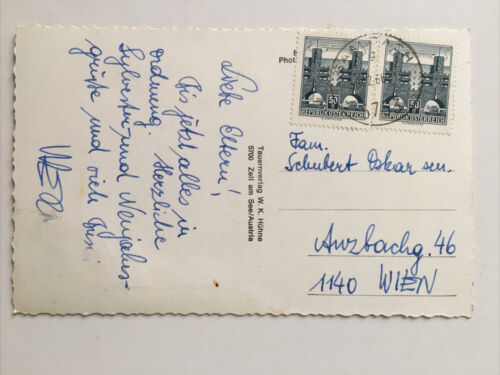 Liebe Eltern!
Bis jetzt alles in
ordnung. Herzliche
Sylvester und Neujahrs-
grüße und viel
Tauernverlag W. K. Hühne
5700 Zell am See/Austria
Phot
50
REPUBLIK ÖSTERREICH
50
REPUBLIK ÖSTERREICH
Fam.
Schubert Oskar sen.
Anzbachg. 46
1140 WIEN